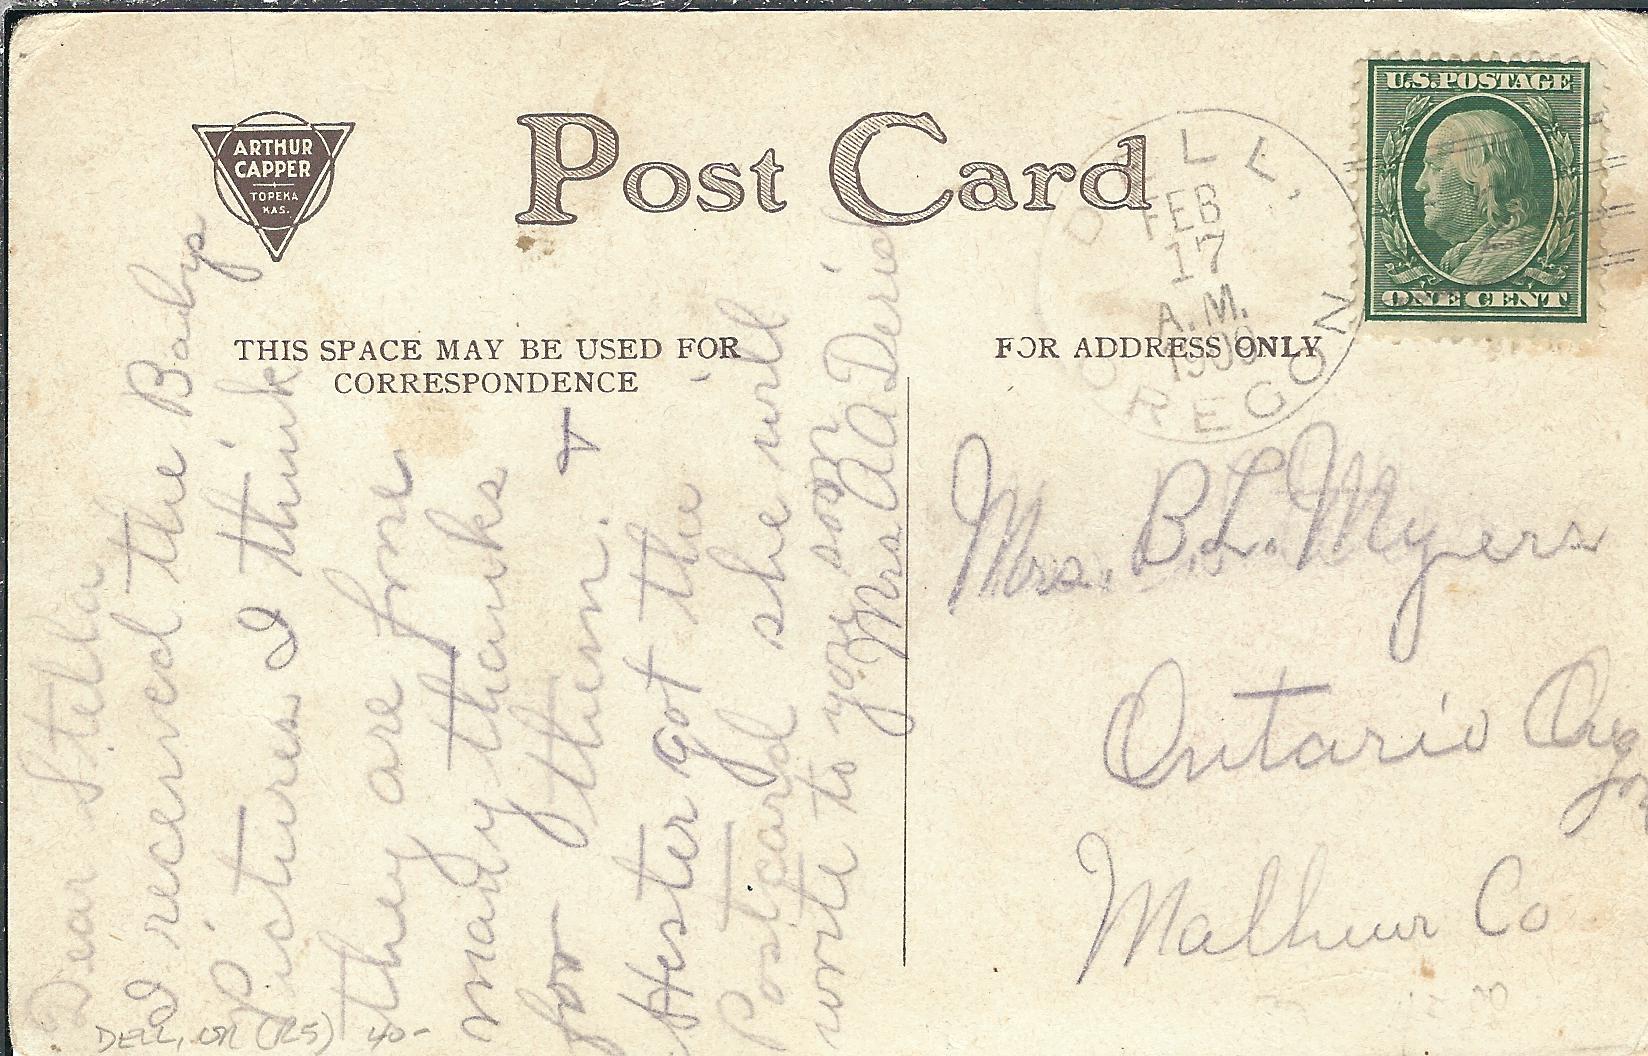 ARTHUR
CAPPER
TOPEKA
KAS.
Post Card
U.S. POSTAGE
ONE CENT
DELL,
FEB
17
A.M.
OREGON
THIS SPACE MAY BE USED FOR
CORRESPONDENCE
FOR ADDRESS ONLY
Dear Stella
I received the Babys
Pictures I think
they are fine
many thanks
for them. &
Hester got the
Postcard she will
write to you soon
Mrs A A Derick
Mrs. B.L. Myers
Ontario
Malheur Co
DELL, OR (R5) 40-